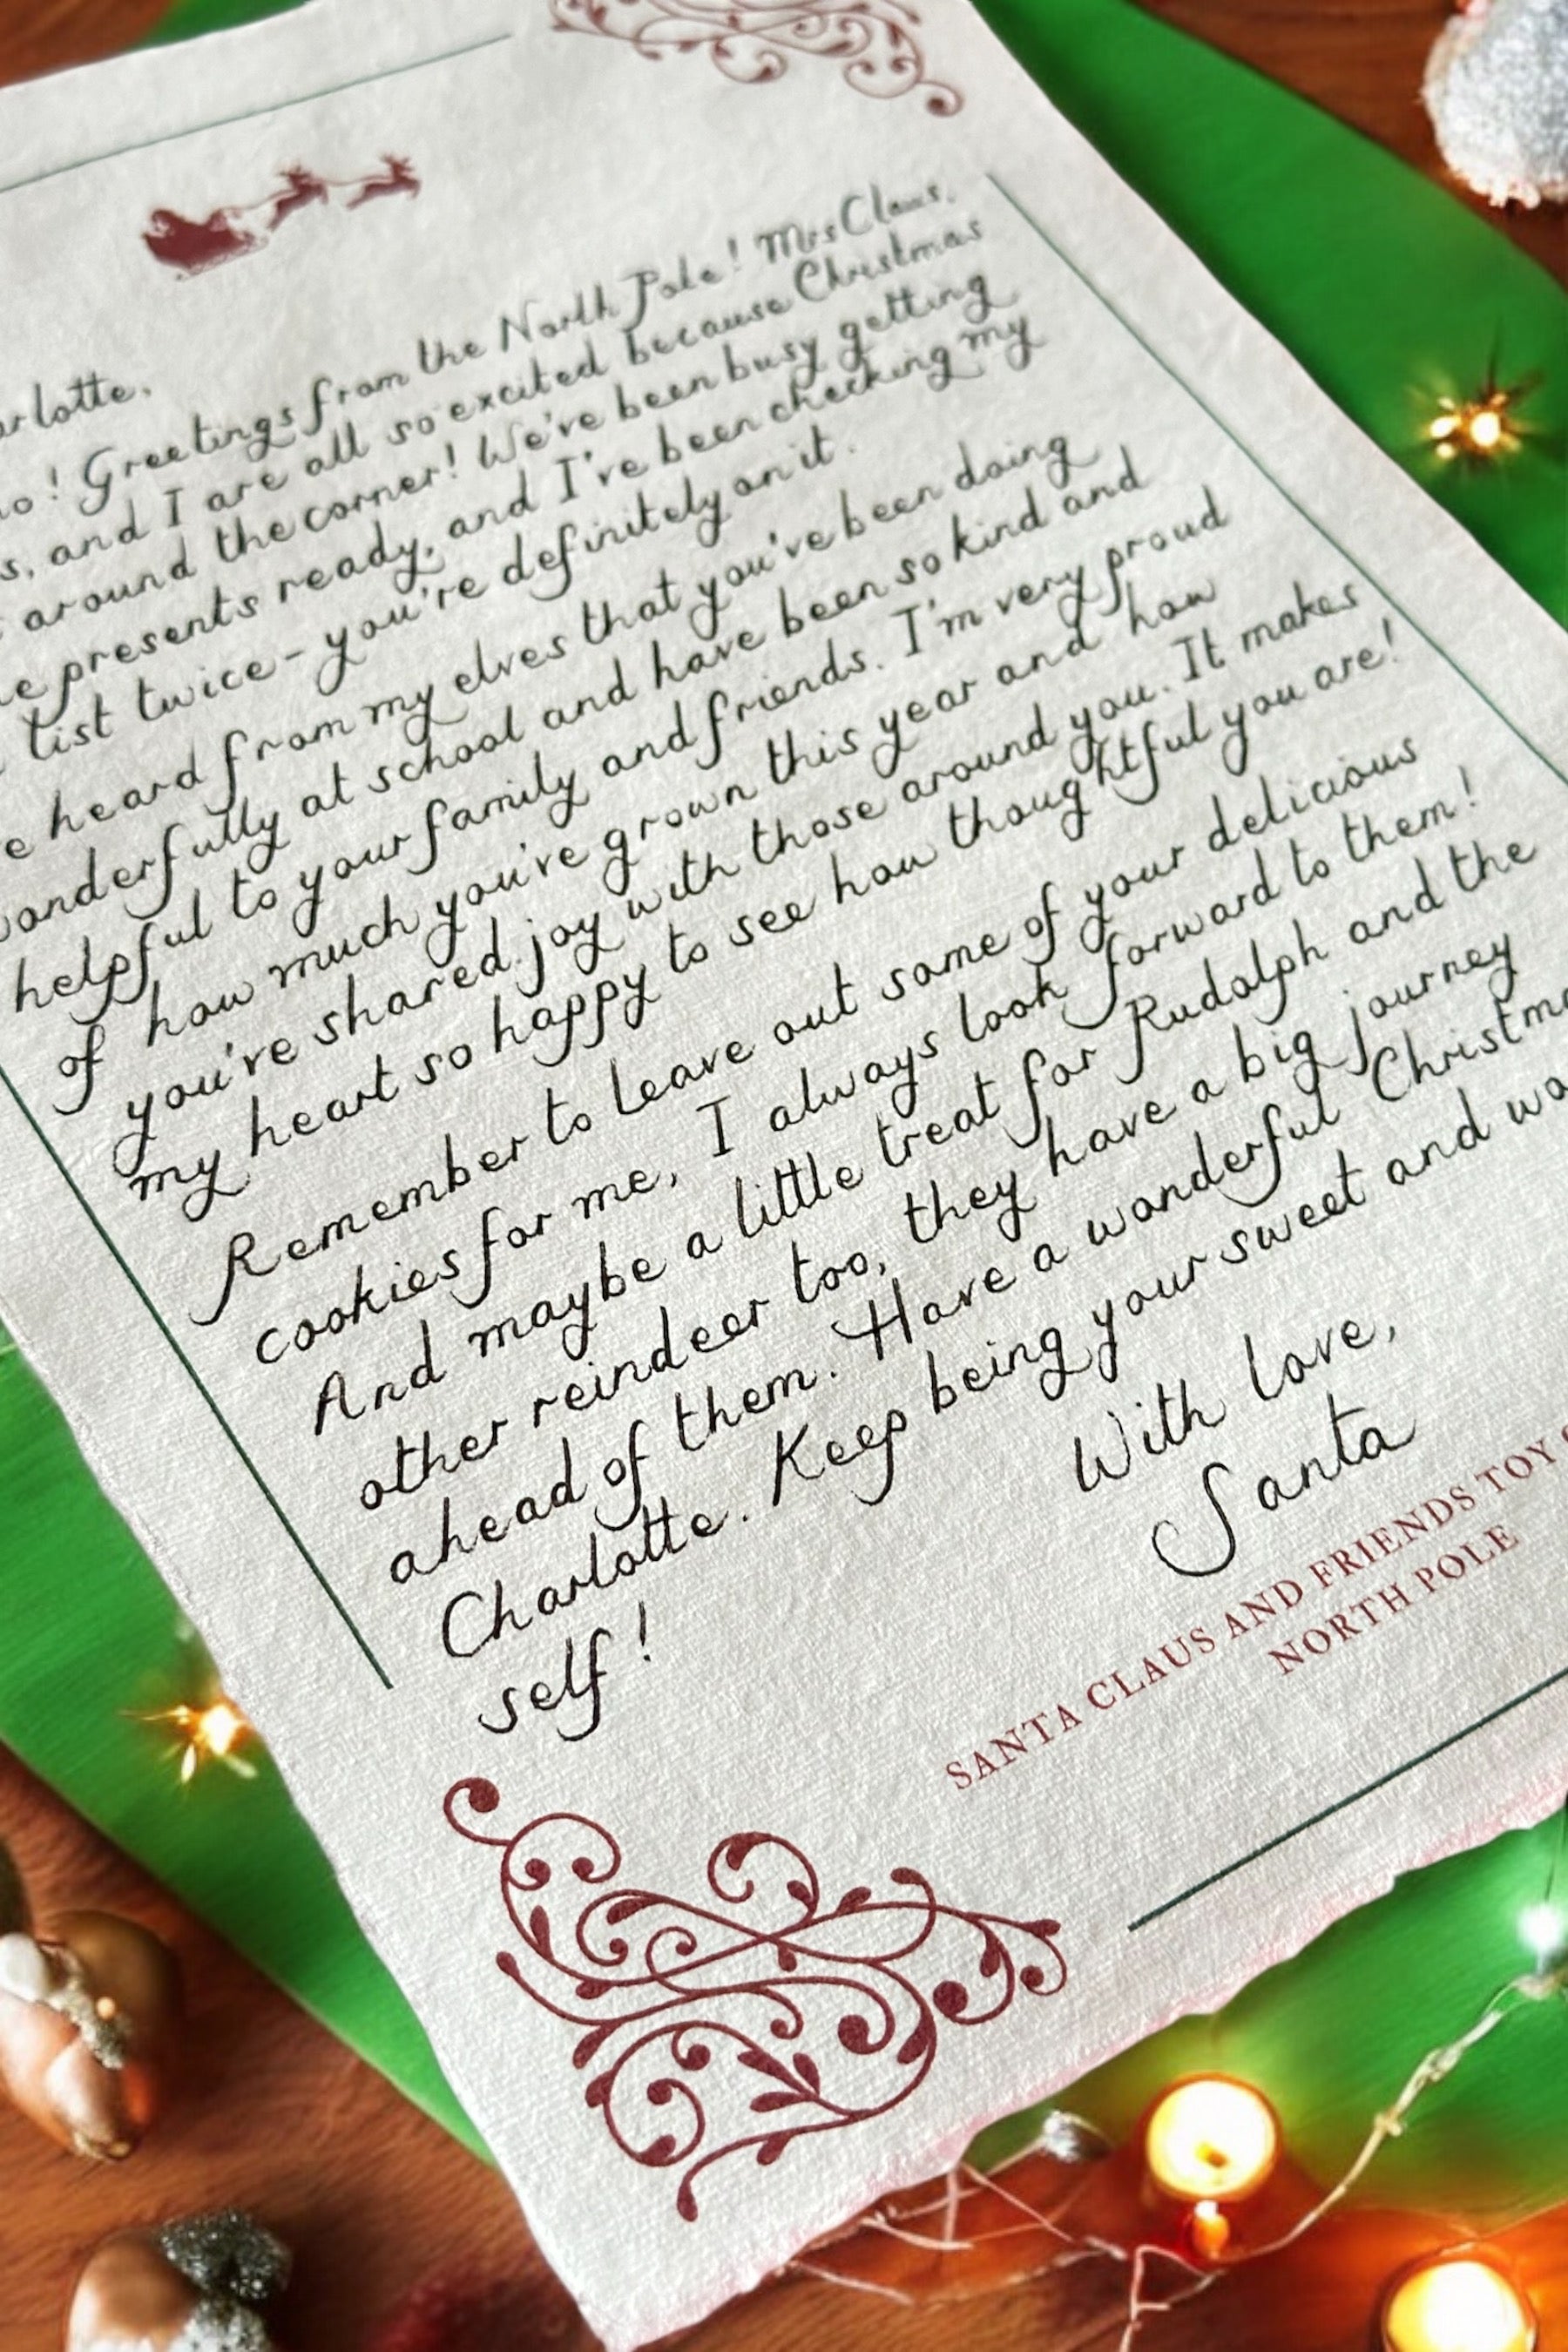 arlotte,
o! Greetings from the North Pole! Mrs Claus,
s, and I are all so excited because Christmas
around the corner! We've been busy getting
e presents ready, and I've been checking my
list twice - you're definitely on it.
e heard from my elves that you've been doing
onderfully at school and have been so kind and
helpful to your family and friends. I'm very proud
of how much you've grown this year and how
you've shared joy with those around you. It makes
my heart so happy to see how thoughtful you are!
Remember to leave out some of your delicious
cookies for me, I always look forward to them!
And maybe a little treat for Rudolph and the
other reindeer too, they have a big journey
ahead of them. Have a wonderful Christma
Charlotte. Keep being your sweet and wo
self!
With love,
Santa
SANTA CLAUS AND FRIENDS TOY
NORTH POLE